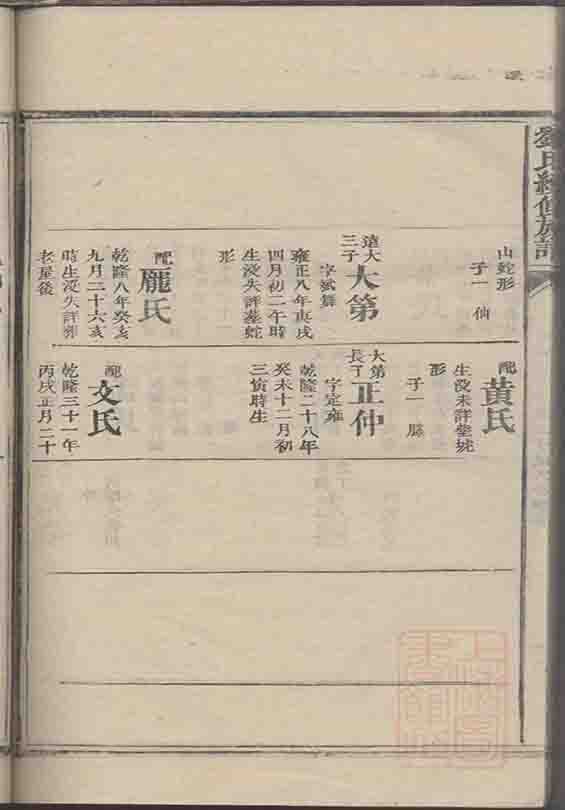 劉氏續修族譜
山蛇形
子一 仙
遠大
三子
大第
字斌舞
雍正八年庚戌
四月初二午時
生沒失詳墓蛇
形
配
龐氏
乾隆八年癸亥
九月二十六亥
時生沒失詳葬
老屋後
配
黃氏
生沒未詳塋坭
形
子一
大第
長丁
正仲
字定雍
乾隆二十八年
癸未十二月初
三寅時生
配
文氏
乾隆三十一年
丙戌正月二十